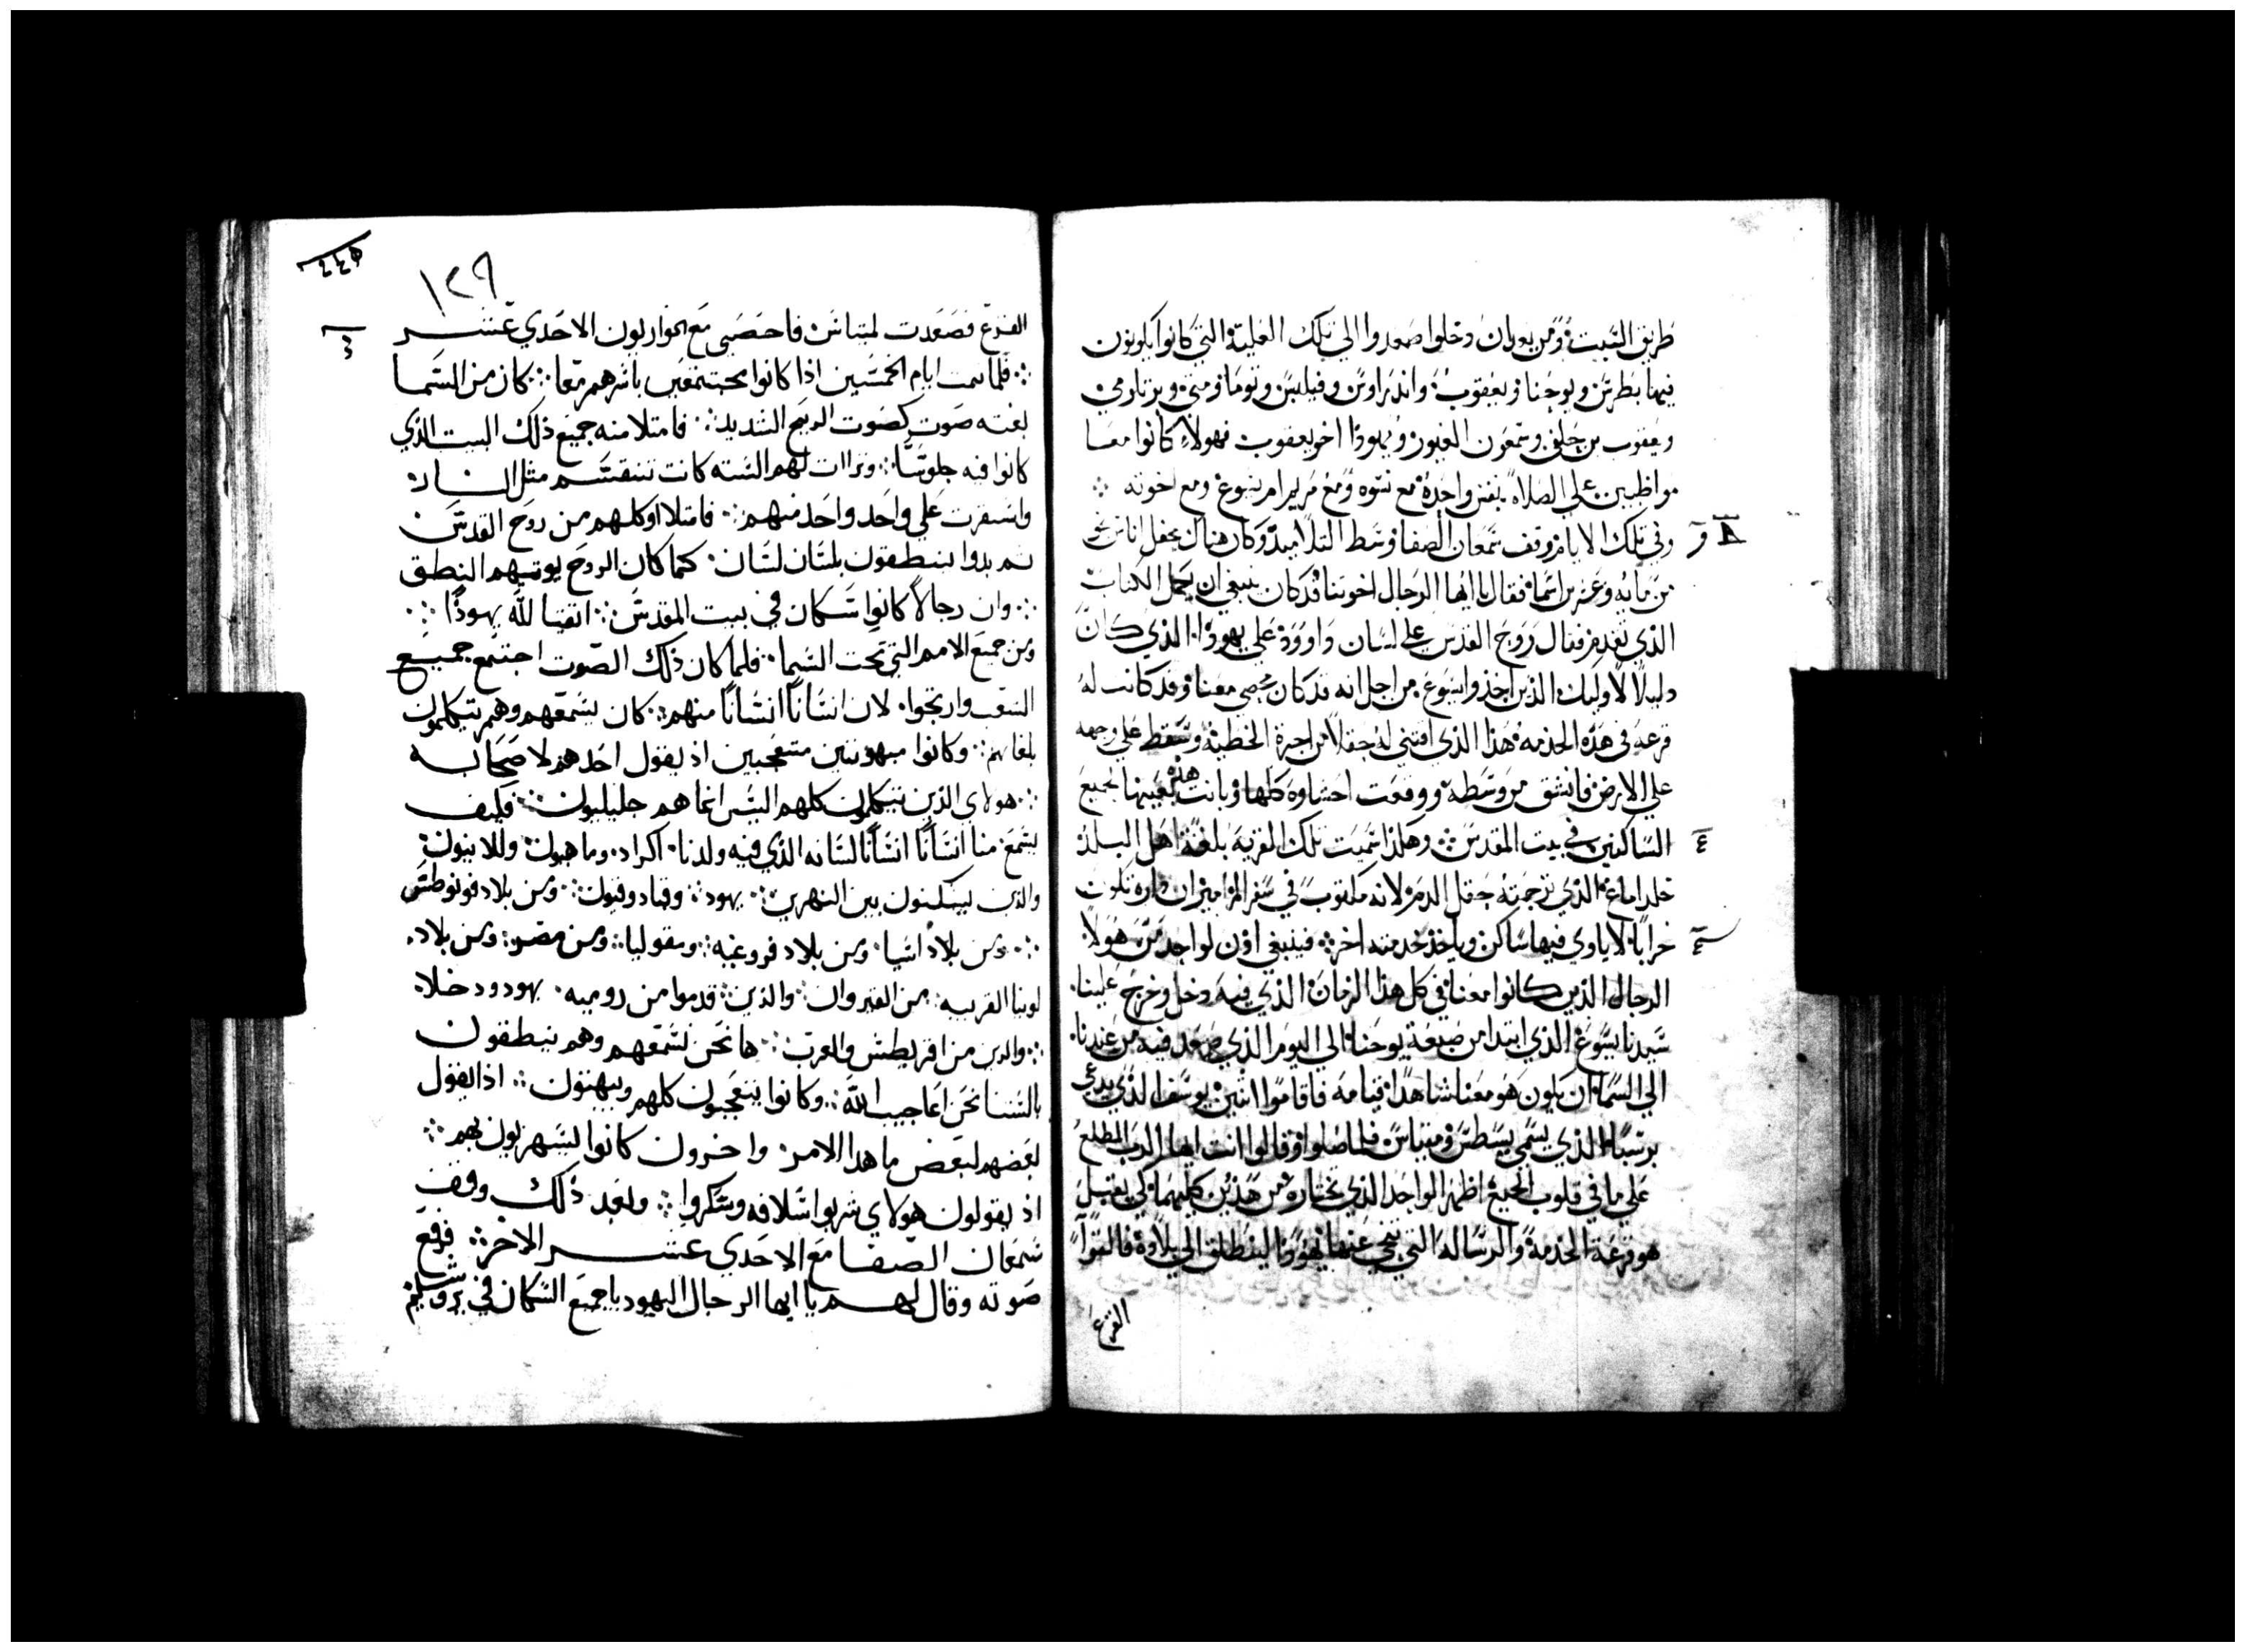 طريق السبت ومن بعد ان دخلوا صعدوا الي تلك العلية التي كانوا يكونون
فيها بطرس ويوحنا ويعقوب واندراوس وفيلبس وتوما ومتي وبرتلومي
ويعقوب بن حلفي وسمعون الغيور ويهودا اخو يعقوب فهولاء كانوا معا
مواظبين علي الصلاة بنفس واحدة مع نسوه ومع مريم ام يسوع ومع اخوته
وفي تلك الايام وقف سمعان الصفا وسط التلاميد وكان هناك محفل اناس نحو
من مايه وعشرين اسما فقال يا ايها الرجال اخوتنا قد كان ينبغي ان يكمل الكتاب
الذي تقدم فقال روح القدس علي لسان داوود علي يهودا الذي كان
دليلا لاوليك الذين اخذوا يسوع من اجل انه قد كان محصي معنا وقد كانت له
قرعه في هذه الخدمه هذا الذي اقتني له حقلا من اجرة الخطية وسقط علي وجهه
علي الارض فانشق من وسطه ووقعت احشاوه كلها وبانت هذه بعينها لجميع
الساكنين في بيت المقدس وهكذا سميت تلك القريه بلغة اهل البلد
حلداماغ الذي ترجمته حقل الدم لانه مكتوب في سفر المزامير ان داره تكون
خرابا لا ياوي فيها ساكن وياخذ خدمته اخر فينبغي اذن لواحد من هولا
الرجال الذين كانوا معنا في كل هذا الزمان الذي فيه دخل وخرج علينا
سيدنا يسوع الذي ابتدا من صبغة يوحنا الي اليوم الذي صعد فيه من عندنا
الي السما ان يكون هو معنا شاهدا قيامه فاقاموا اثنين يوسف الذي يدعي
برسبا الذي يسمي يسطس ومتياس فلما صلوا وقالوا انت ايها الرب المطلع
علي ما في قلوب الجميع اظهر الواحد الذي تختاره من هذين كليهما كي يقبل
هو قرعة الخدمة والرساله التي تنحي عنها يهودا لينطلق الي بلاده فالقوا
القرع
١٢٩
القرع فصعدت لمتياس فاحصي مع الحواريون الاحدي عشر
فلما تمت ايام الخمسين اذا كانوا مجتمعين باسرهم معا كان من السما
بغته صوت كصوت الريح الشديد فامتلا منه جميع ذلك البيت الذي
كانوا فيه جلوسا وتراات لهم السنه كانت تنقسم مثل النار
واستقرت علي واحد واحد منهم فامتلاوا كلهم من روح القدس
ثم بدوا ينطقون بلسان لسان كما كان الروح يوتيهم النطق
وان رجالا كانوا سكان في بيت المقدس اتقيا لله يهودا
ومن جميع الامم التي تحت السما فلما كان ذلك الصوت اجتمع جميع
الشعب وارتجوا لان انسانا انسانا منهم كان يسمعهم وهم يتكلمون
بلغاتهم وكانوا مبهوتين متعجبين اذ يقول احدهم لاصحابه
هولاي الذين يتكلمون كلهم اليس انما هم جليليون فكيف
يسمع منا انسانا انسانا لسانه الذي فيه ولدنا اكراد وماهيون واللانيون
والذين يسكنون بين النهرين يهود وقبادوقيون ومن بلاد فونوطس
ومن بلاد اسيا ومن بلاد فروغيه وبمفوليا ومن مصر ومن بلاد
لوبيا القريبه من القيروان والذين قدموا من روميه يهود ودخلا
والذين من اقريطش والعرب ها نحن نسمعهم وهم ينطقون
بالسنتنا نحن اعاجيب الله وكانوا يتعجبون كلهم ويبهتون اذ يقول
بعضهم لبعض ما هذا الامر واخرون كانوا يستهزيون بهم
اذ يقولون هولاي شربوا سلافه وسكروا وبعد ذلك وقف
سمعان الصفا مع الاحدي عشر الاخر فرفع
صوته وقال لهم يا ايها الرجال اليهود يا جميع السكان في يروشليم